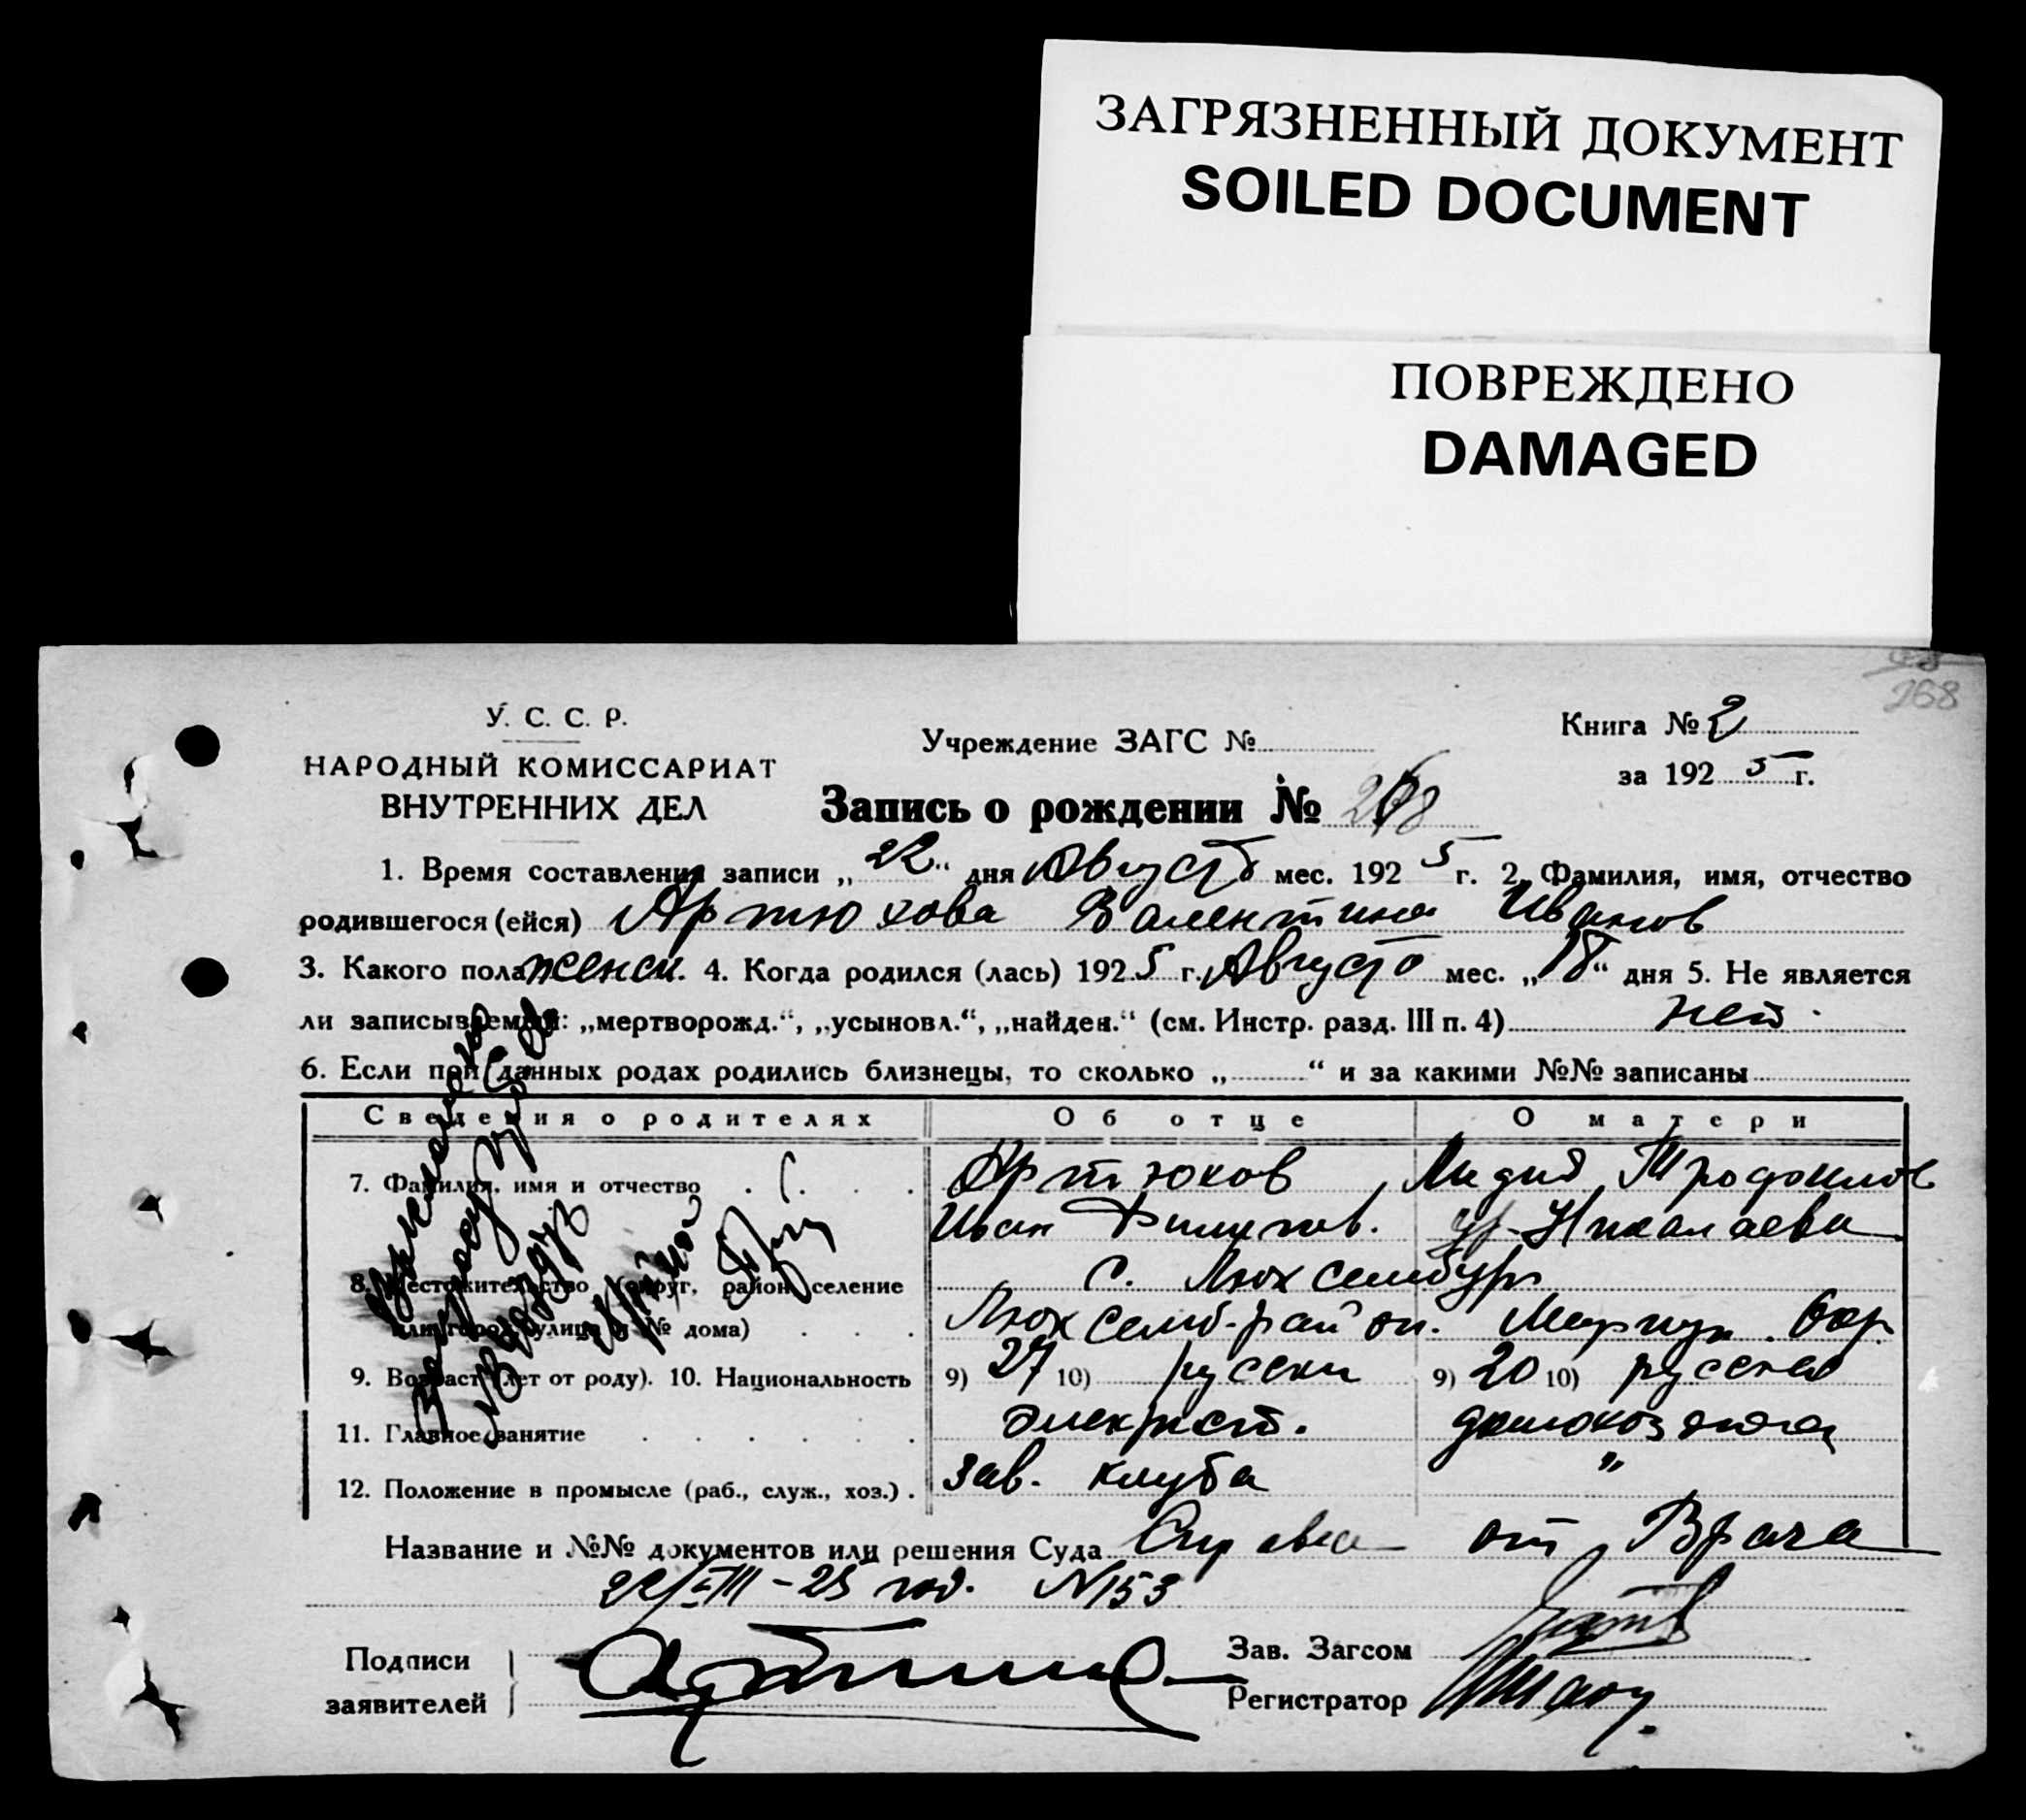 ЗАГРЯЗНЕННЫЙ ДОКУМЕНТ
SOILED DOCUMENT
ПОВРЕЖДЕНО
DAMAGED
268
У. С. С. Р.
НАРОДНЫЙ КОМИССАРИАТ
ВНУТРЕННИХ ДЕЛ
Учреждение ЗАГС №
Книга № 2
за 1925 г.
Запись о рождении №
1. Время составления записи „22“ дня Август мес. 1925 г. 2. Фамилия, имя, отчество
родившегося (ейся) Артюхова Валентина Иванов
3. Какого пола женск. 4. Когда родился (лась) 1925 г. Август мес. „18“ дня 5. Не является
ли записываемый: „мертворожд.“, „усыновл.“, „найден.“ (см. Инстр. разд. III п. 4) нет.
6. Если при данных родах родились близнецы, то сколько „ “ и за какими №№ записаны
Сведения о родителях Об отце О матери
7. Фамилия, имя и отчество . . . Артюхов Лидия
Иван Филипов. ур. Николаева
8. Местожительство (округ, район, селение с. Люксембург
или город, улица и № дома) . . . Люксемб. район. Мариуп.
9. Возраст (лет от роду). 10. Национальность 9) 27 10) русски 9) 20 10) русская
11. Главное занятие . . . . . . домохозяйка
12. Положение в промысле (раб., служ., хоз.) . зав. клуба "
Название и №№ документов или решения Суда Справка от Врача
22/VIII-25 год. N153
Подписи
заявителей
Зав. Загсом
Регистратор